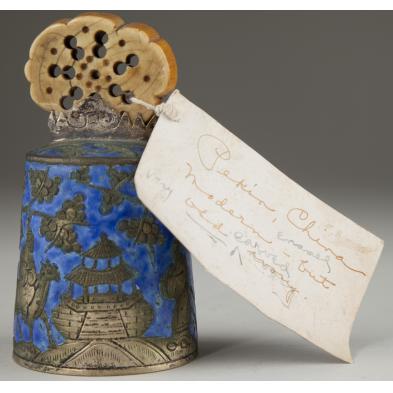 Pekin, China
very modern, enamel
- but
old carved
ivory.